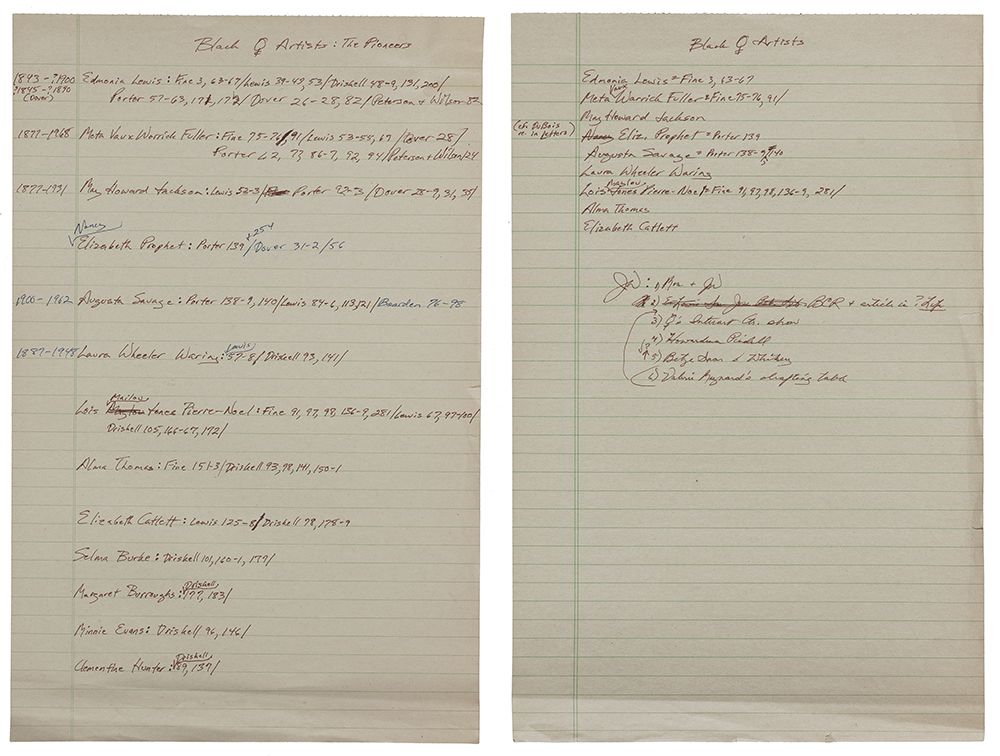 Black ♀ Artists: The Pioneers
1843-?1900 Edmonia Lewis: Fine 3, 63-67/Lewis 39-45, 53/Driskell 48-9, 131, 200/
?1845-?1890
(Dover) Porter 57-63, 171, 172/Dover 26-28, 82/Peterson & Wilson 22
1877-1968 Meta Vaux Warrick Fuller: Fine 75-76/91/Lewis 53-55, 67/Dover 28/
Porter 62, 77, 86-7, 92, 94/Peterson & Wilson/24
1877-1931 May Howard Jackson: Lewis 52-3/Porter 92-3/Dover 28-9, 31, 55/
Nancy
Elizabeth Prophet: Porter 139/254/Dover 31-2/56
1900-1962 Augusta Savage: Porter 138-9, 140/Lewis 84-6, 113, 121/Bearden 76-98
1887-1948 Laura Wheeler Waring: Lewis 57-8/Driskell 93, 141/
Mailou
Lois Jones Pierre-Noel: Fine 91, 97, 98, 136-9, 281/Lewis 67, 97-100/
Driskell 105, 166-67, 172/
Alma Thomas: Fine 151-3/Driskell 93, 98, 141, 150-1
Elizabeth Catlett: Lewis 125-8/Driskell 78, 178-9
Selma Burke: Driskell 101, 160-1, 179/
Driskell
Margaret Burroughs: 177, 183/
Minnie Evans: Driskell 96, 146/
Driskell
Clementine Hunter: 89, 137/
Black ♀ Artists
Edmonia Lewis = Fine 3, 63-67
Vaux
Meta Warrick Fuller = Fine 75-76, 91/
May Howard Jackson
(ck DuBois
re. in Letters) Nancy Eliz. Prophet = Porter 139
Augusta Savage = Porter 138-9, 140
Laura Wheeler Waring
Mailou
Lois Jones Pierre-Noel = Fine 91, 97, 98, 136-9, 281/
Alma Thomas
Elizabeth Catlett
JW: 1) Mrs + JW
2) BCR + article in ? Life
3) Q's Interart Ctr. show
4) Howardena Pindell
5) Betye Saar & Whitney
6) Valerie Maynard's drafting table